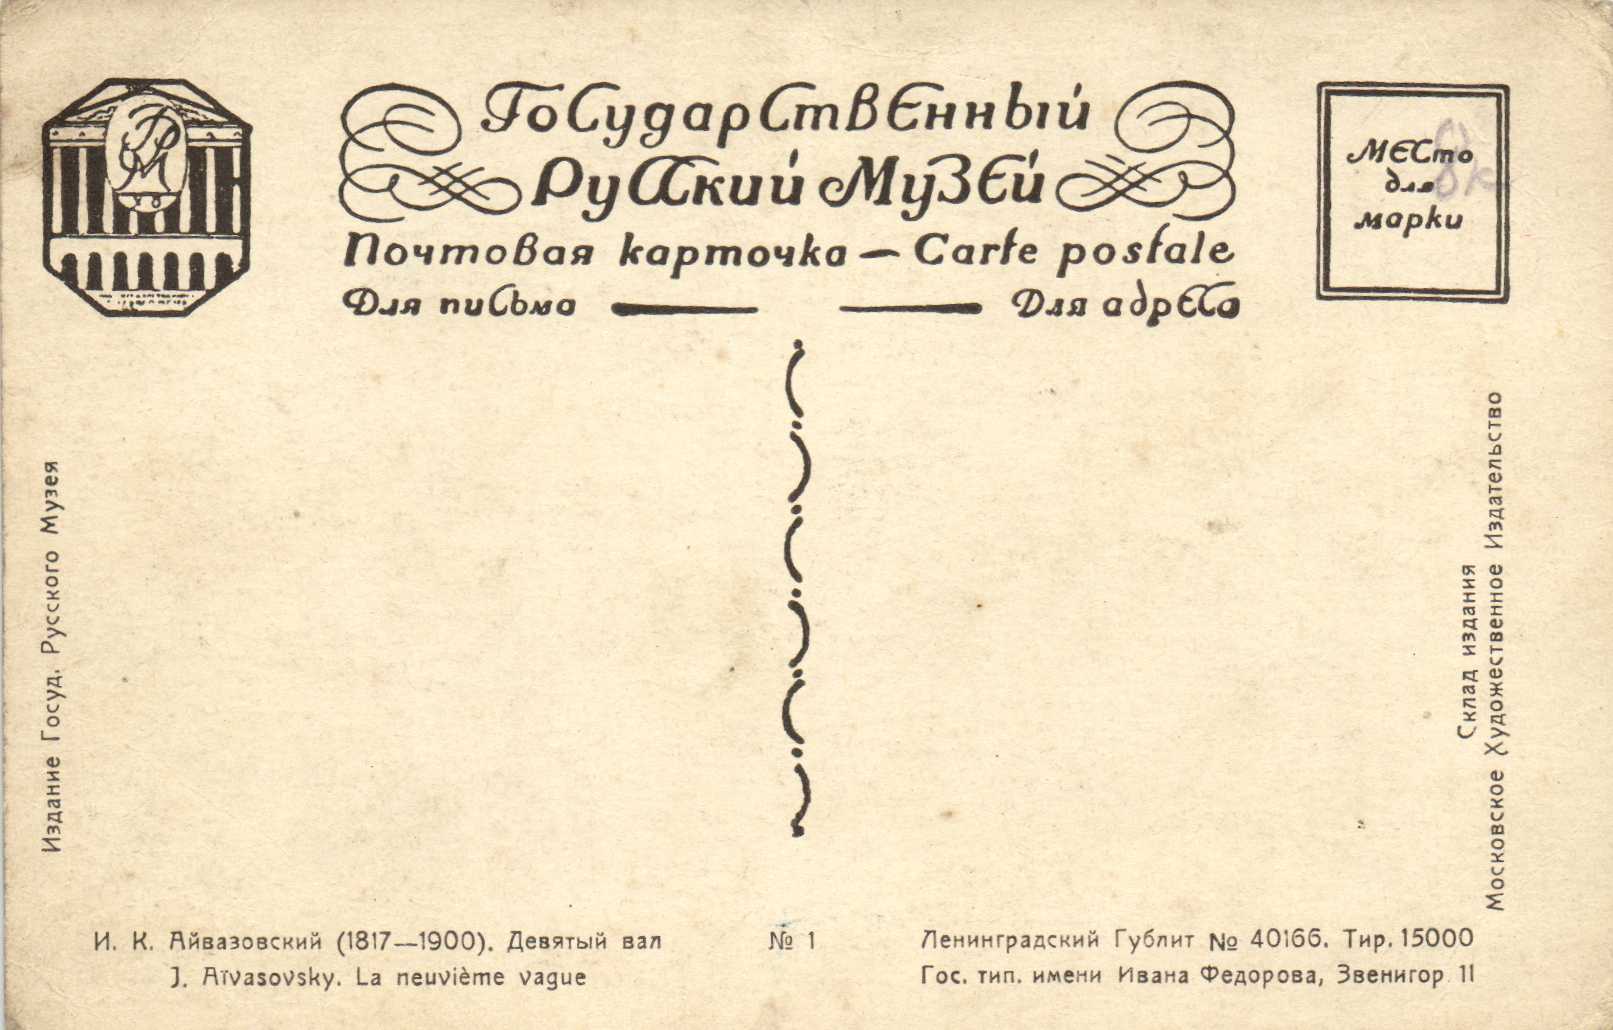 Государственный
Русский Музей
Почтовая карточка — Carte postale
Для письма
Для адреса
Место
для
марки
Издание Госуд. Русского Музея
Склад издания
Московское Художественное Издательство
И. К. Айвазовский (1817—1900). Девятый вал
J. Aïvasovsky. La neuvième vague
№ 1
Ленинградский Гублит № 40166. Тир. 15000
Гос. тип. имени Ивана Федорова, Звенигор 11